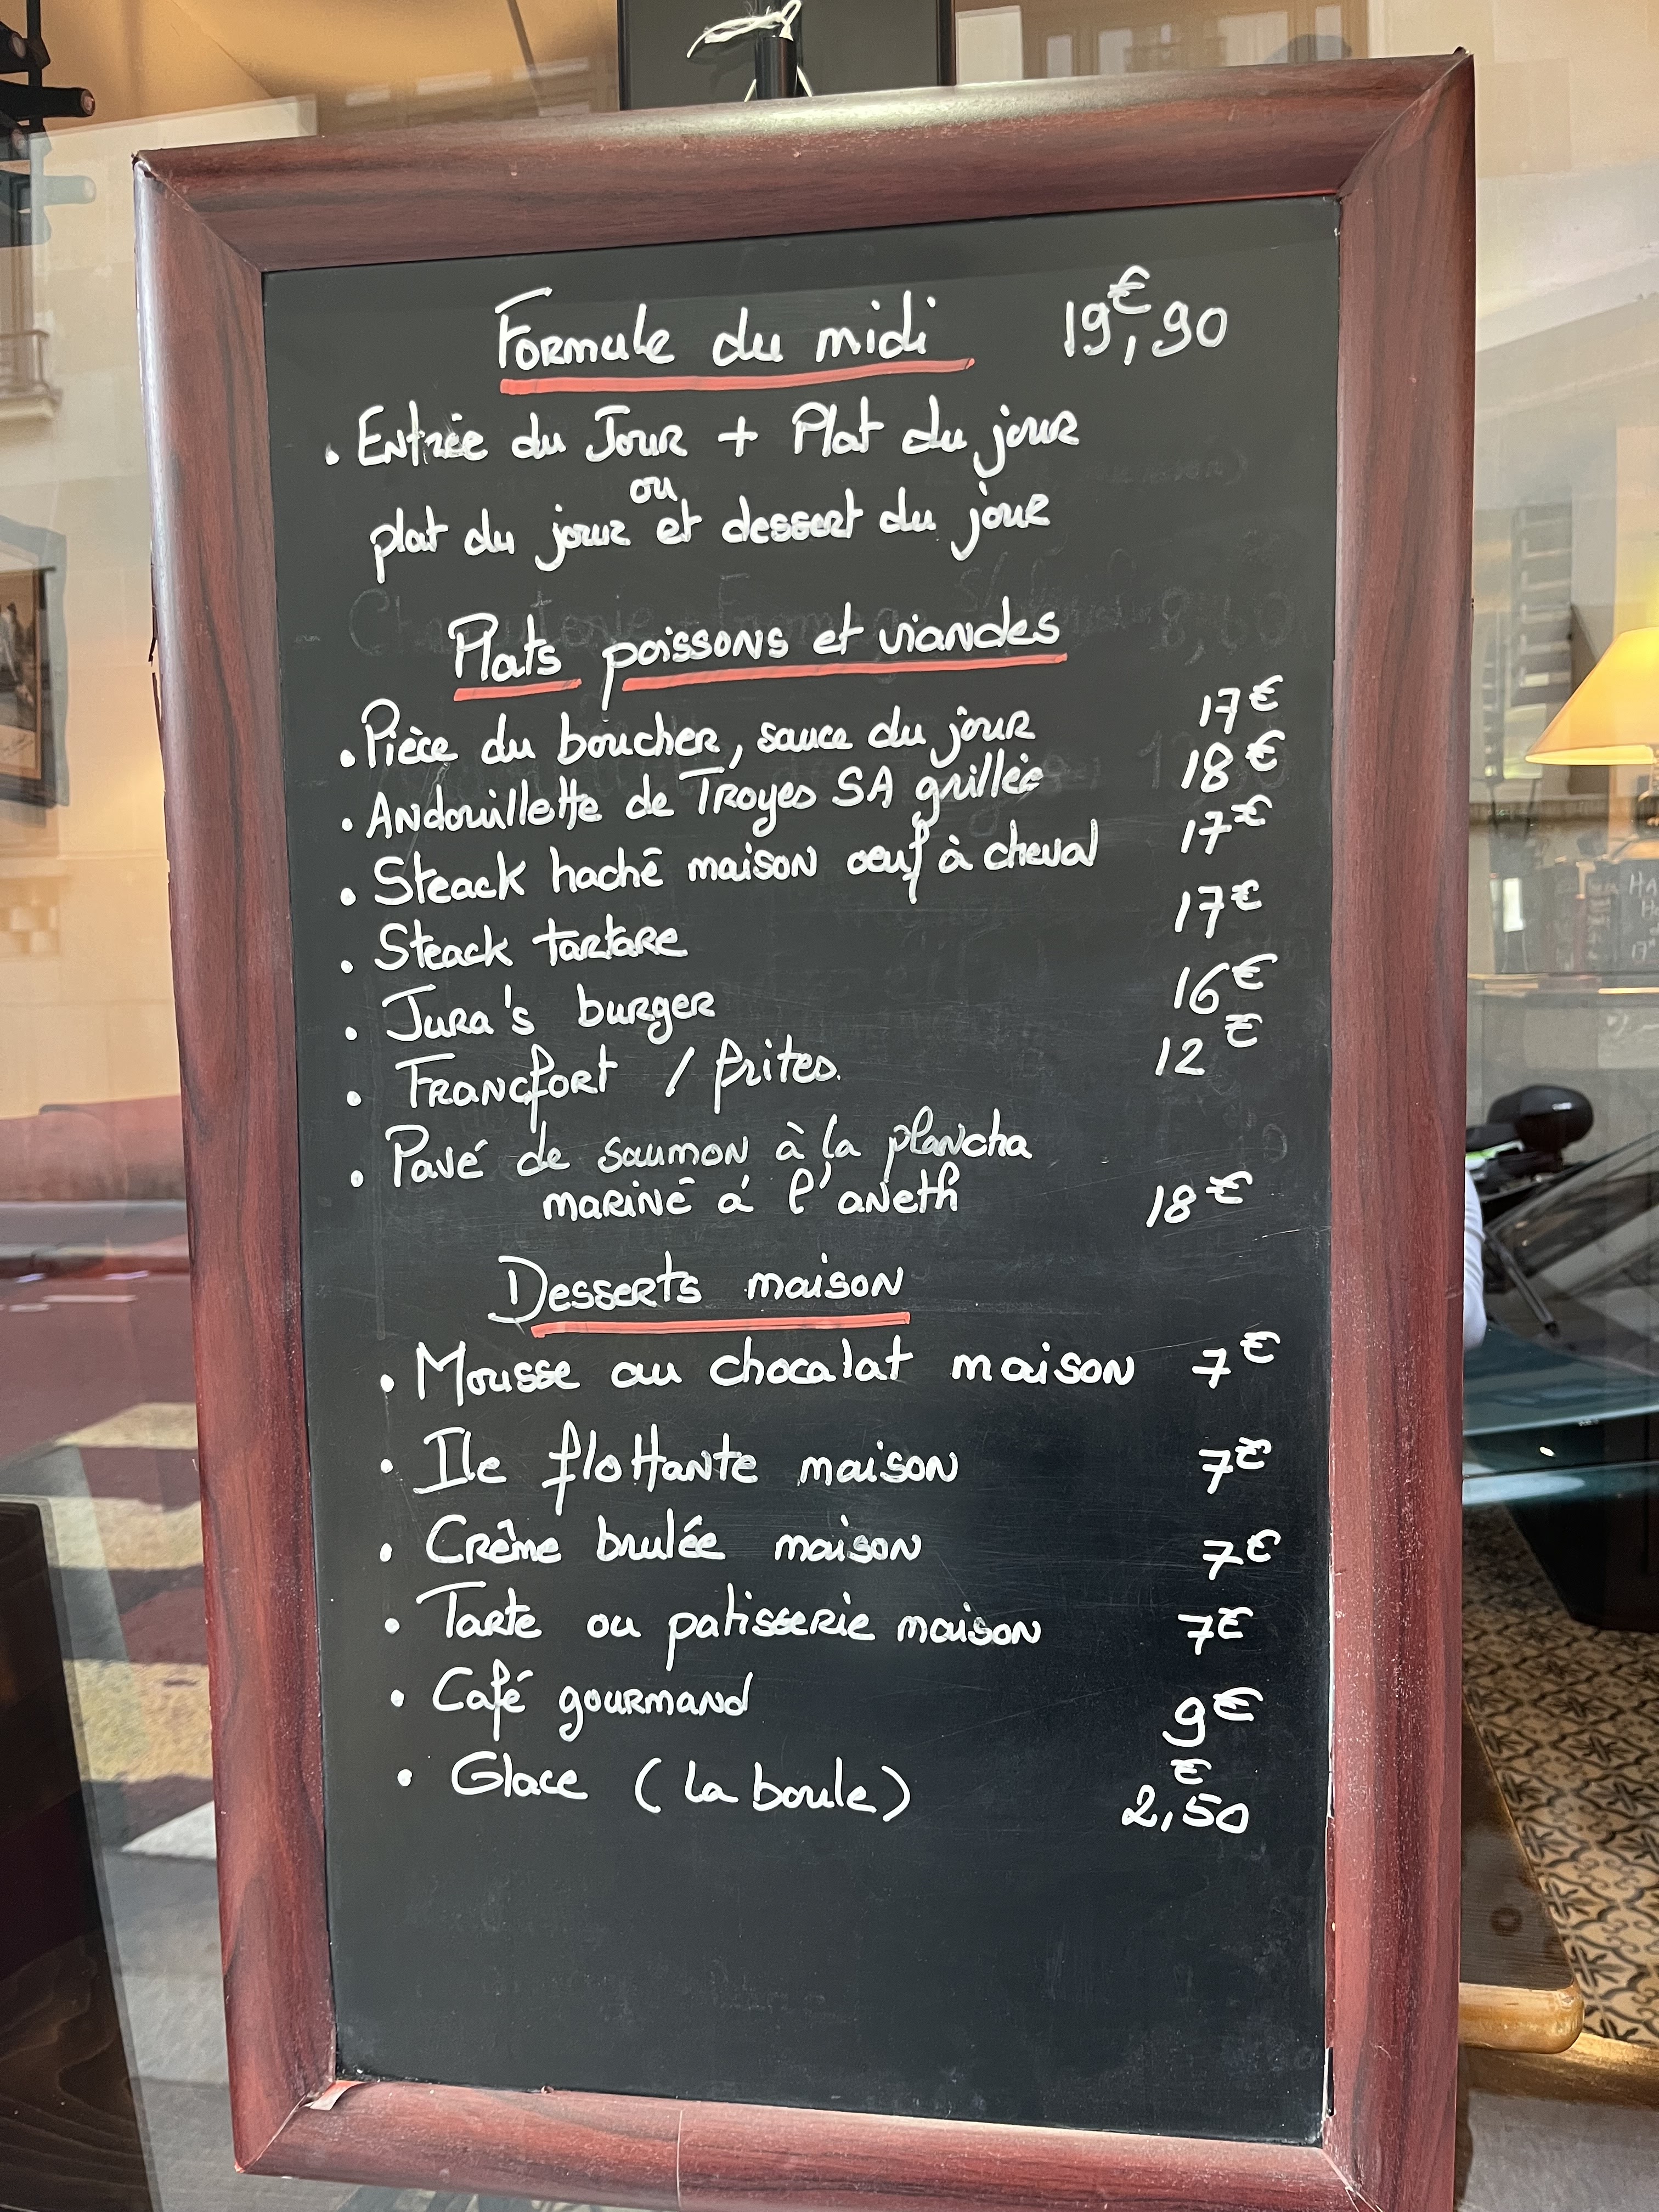 Formule du midi 19€,90
• Entrée du Jour + Plat du jour
ou
plat du jour et dessert du jour
Plats poissons et viandes
• Pièce du boucher, sauce du jour 17€
• Andouillette de Troyes SA grillée 18€
• Steack haché maison oeuf à cheval 17€
• Steack tartare 17€
• Jura's burger 16€
• Francfort / frites. 12€
• Pavé de saumon à la plancha
mariné à l'aneth 18€
Desserts maison
• Mousse au chocalat maison 7€
• Ile flottante maison 7€
• Crême brulée maison 7€
• Tarte ou patisserie maison 7€
• Café gourmand 9€
• Glace (la boule) 2,50€